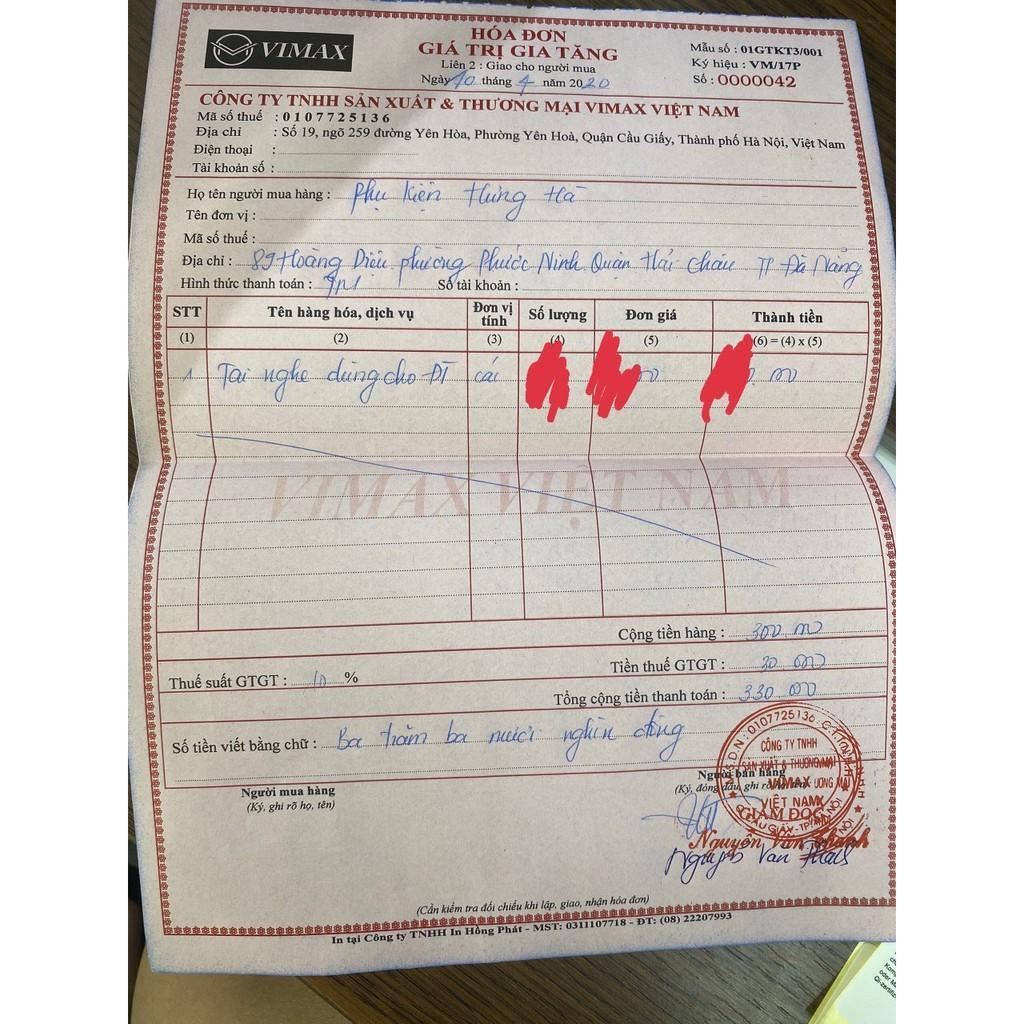 VIMAX
HÓA ĐƠN
GIÁ TRỊ GIA TĂNG
Liên 2 : Giao cho người mua
Ngày 10 tháng 4 năm 2020
Mẫu số : 01GTKT3/001
Ký hiệu : VM/17P
Số : 0000042
CÔNG TY TNHH SẢN XUẤT & THƯƠNG MẠI VIMAX VIỆT NAM
Mã số thuế : 0107725136
Địa chỉ : Số 19, ngõ 259 đường Yên Hòa, Phường Yên Hoà, Quận Cầu Giấy, Thành phố Hà Nội, Việt Nam
Điện thoại :
Tài khoản số :
Họ tên người mua hàng : Phụ kiện Hưng Hà
Tên đơn vị :
Mã số thuế :
Địa chỉ : 89 Hoàng Diệu phường Phước Ninh Quận Hải Châu TP Đà Nẵng
Hình thức thanh toán : TM Số tài khoản :
STT Tên hàng hóa, dịch vụ Đơn vị tính Số lượng Đơn giá Thành tiền
(1) (2) (3) (4) (5) (6) = (4) x (5)
1 Tai nghe dùng cho ĐT cái
VIMAX VIỆT NAM
Cộng tiền hàng : 300 000
Thuế suất GTGT : 10 % Tiền thuế GTGT : 30 000
Tổng cộng tiền thanh toán : 330 000
Số tiền viết bằng chữ : Ba trăm ba mươi nghìn đồng
Người mua hàng
(Ký, ghi rõ họ, tên)
Người bán hàng
(Ký, đóng dấu, ghi rõ họ, tên)
M.S.D.N : 0107725136
CÔNG TY TNHH
SẢN XUẤT & THƯƠNG MẠI
VIMAX
VIỆT NAM
Q. CẦU GIẤY - TP. HÀ NỘI
GIÁM ĐỐC
Nguyễn Văn Thành
(Cần kiểm tra đối chiếu khi lập, giao, nhận hóa đơn)
In tại Công ty TNHH In Hồng Phát - MST: 0311107718 - ĐT: (08) 22207993